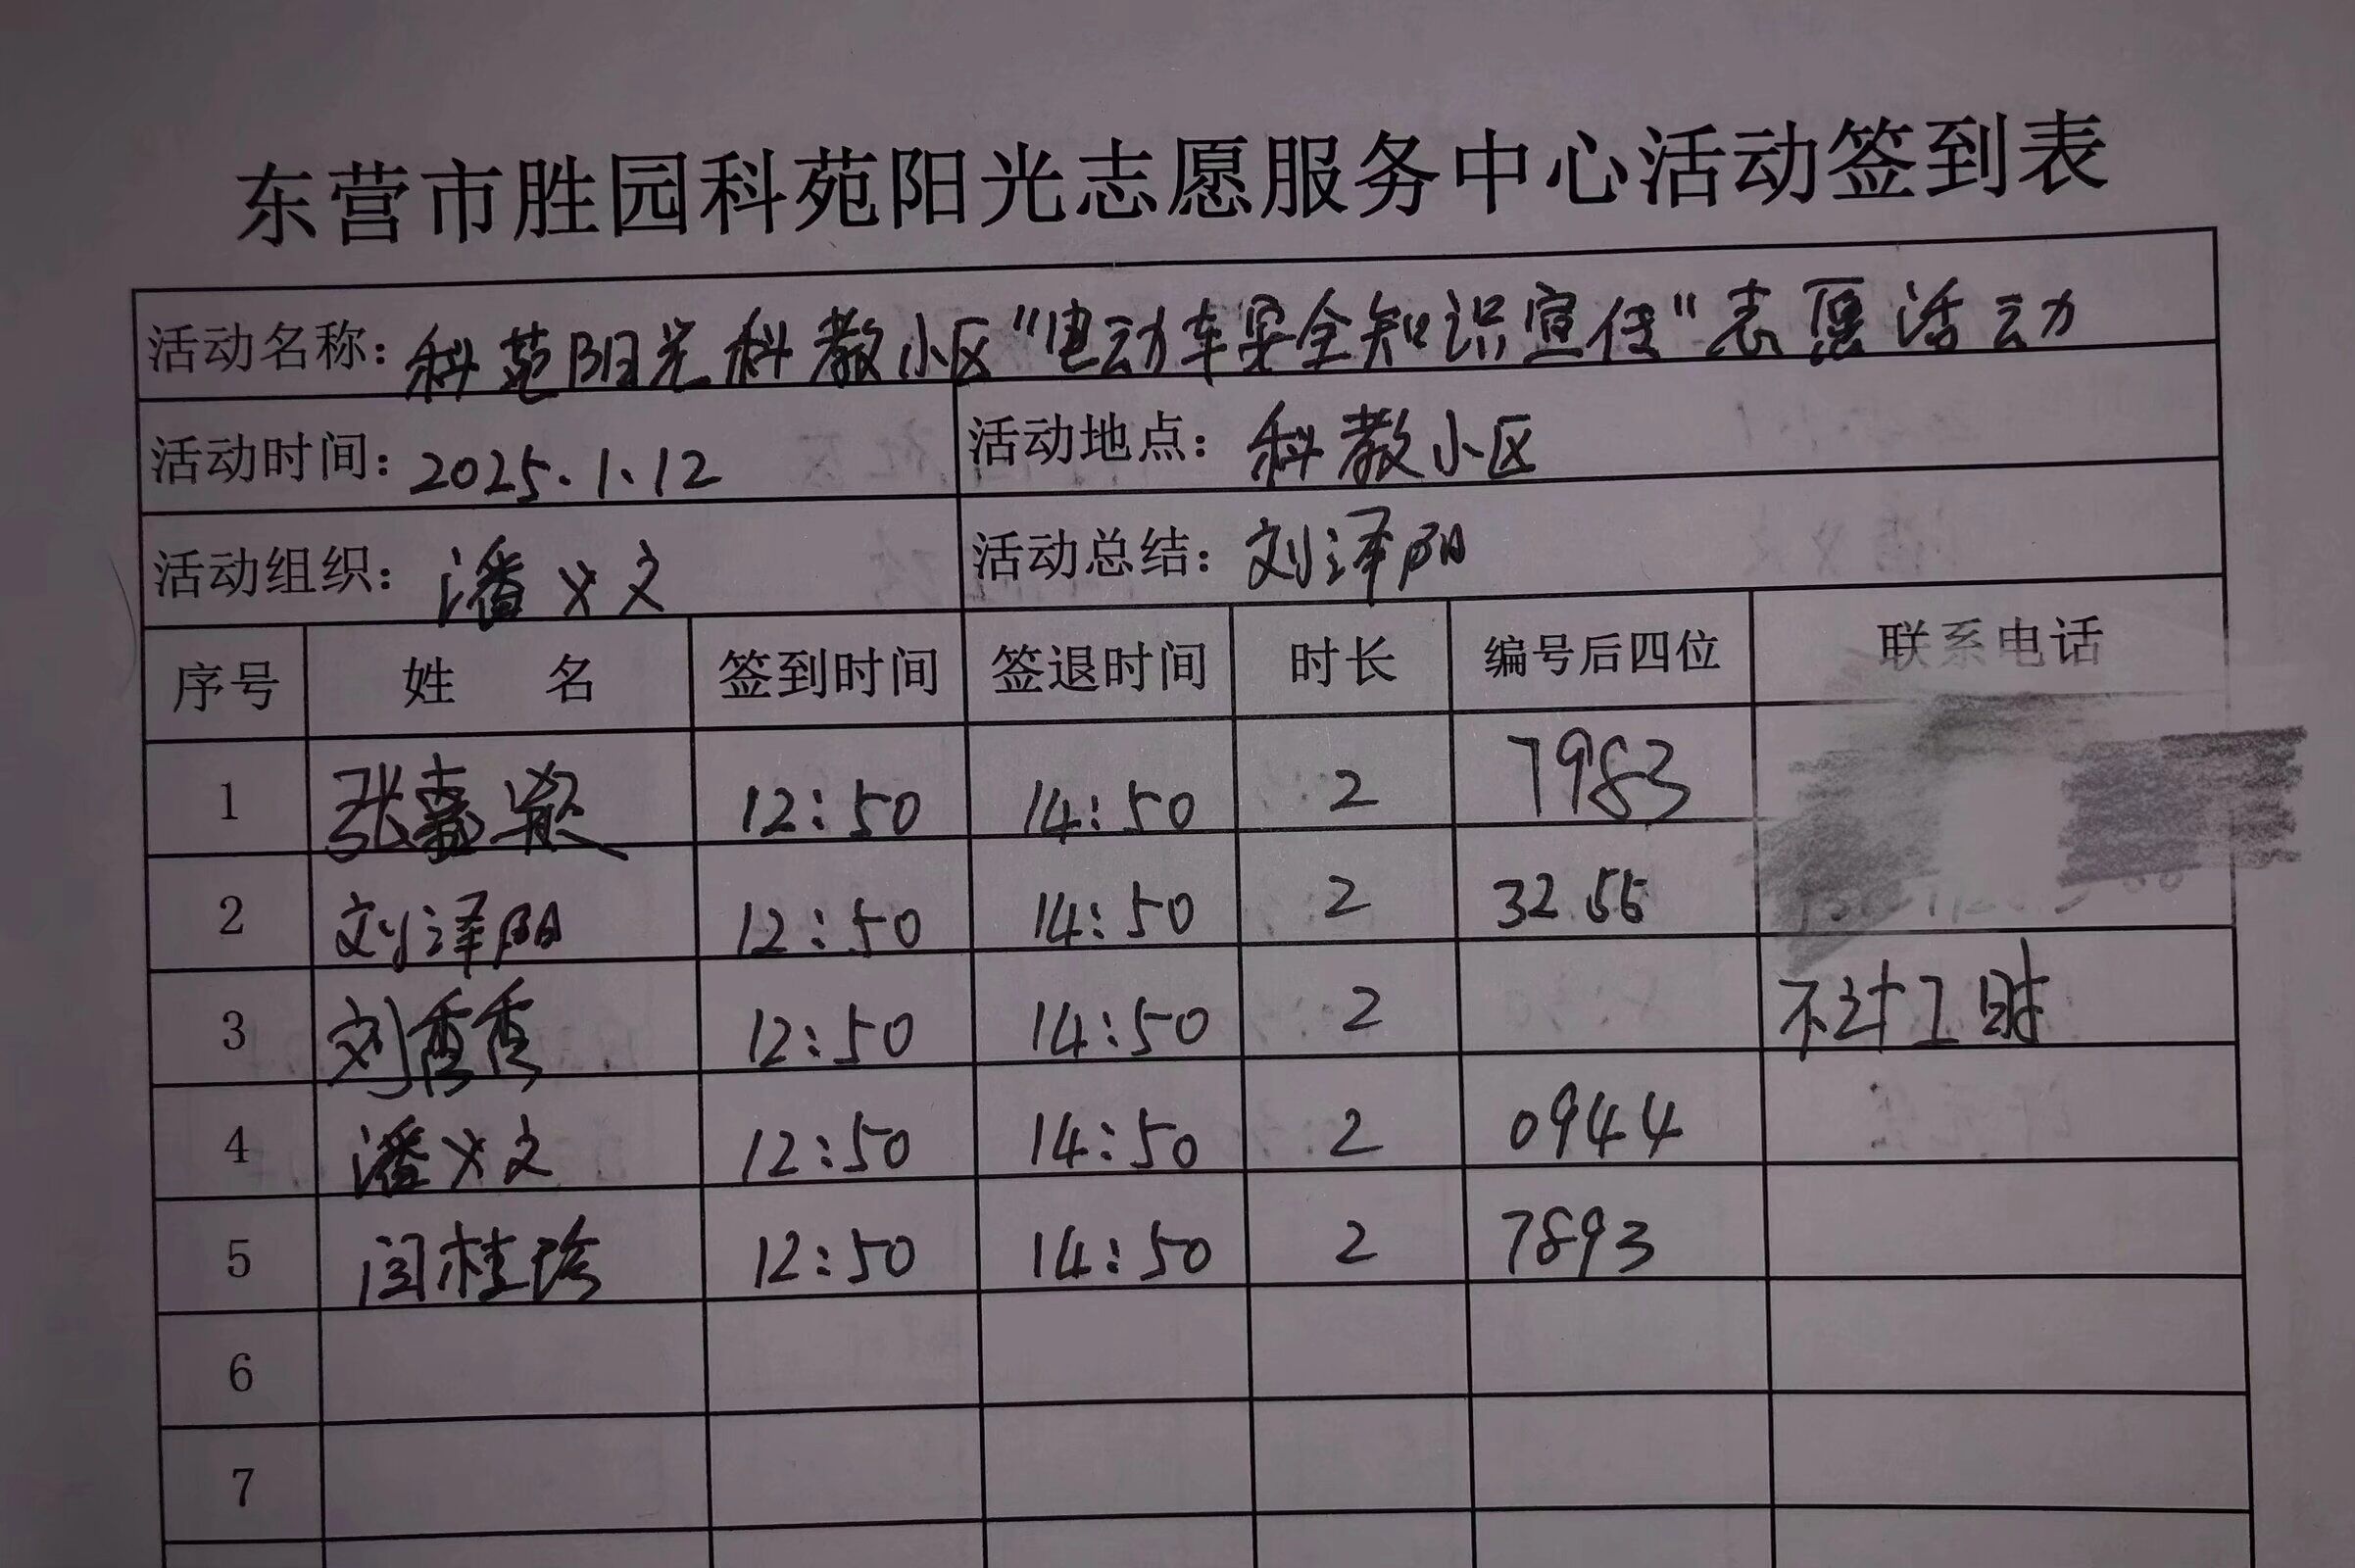 东营市胜园科苑阳光志愿服务中心活动签到表
活动名称：科苑阳光科教小区“电动车安全知识宣传”志愿活动
活动时间：2025.1.12 活动地点：科教小区
活动组织：潘义文 活动总结：刘泽阳
序号 姓名 签到时间 签退时间 时长 编号后四位 联系电话
1 张嘉 12:50 14:50 2 7983
2 刘泽阳 12:50 14:50 2 3255
3 刘秀秀 12:50 14:50 2 不计工时
4 潘义文 12:50 14:50 2 0944
5 闫桂珍 12:50 14:50 2 7893
6
7